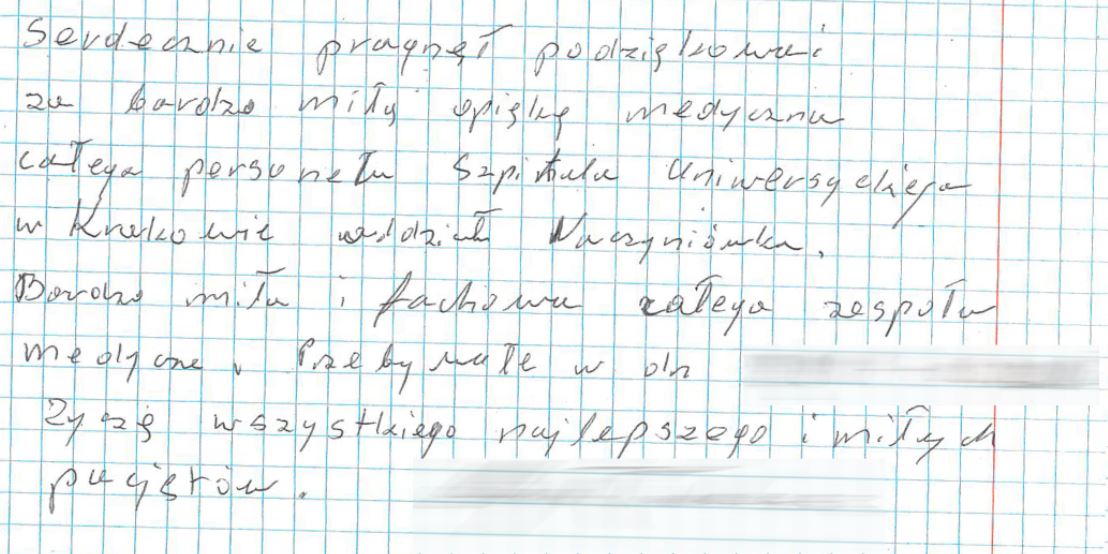 Serdecznie pragnęł podziękować
za bardzo miłą opiękę medyczna
całego personelu Szpitala Uniwersyckiego
w Krakowie oddział Naczyniówka.
Bardzo miła i fachowa całego zespołu
medyczne. Przebywałe w dn
Zyczę wszystkiego najlepszego i miłych
pacjętów.